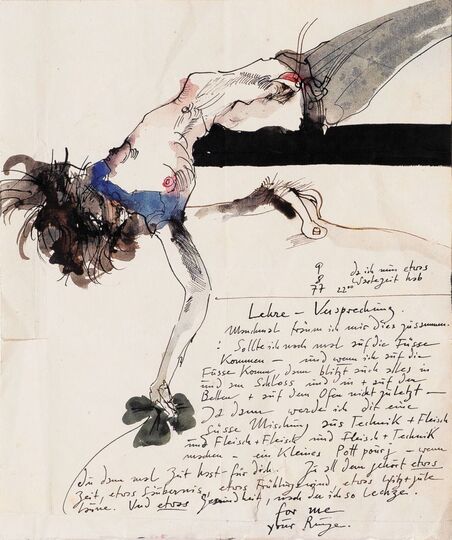 9
8
77 22°° da ich nun etwas
Wartezeit hab
Lehre – Versprechung.
Manchmal träum ich mir dies zusammen.
: Sollte ich noch mal auf die Füsse
Kommen – und wenn ich auf die
Füsse Komm, dann blitzt auch alles in
und am Schloss und in + auf den
Betten + auf dem Ofen nicht zuletzt –
Ja dann werde ich dir eine
süsse Mischung aus Technik + Fleisch
und Fleisch + Fleisch und Fleisch + Technik
machen – ein Kleines Pott – wenn
Du dann mal Zeit hast für dich. Zu all dem gehört etwas
Zeit, etwas etwas Frühlingswind, etwas
Und etwas Gesundheit, nach der ich so Lechze.
for me
your